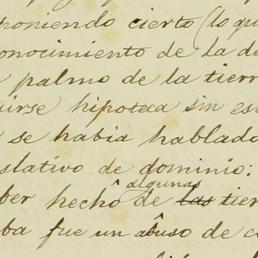 poniendo cierto (lo qu
onocimiento de la de
palmo de la tierr
uirse hipoteca sin es
se habia hablado
slativo de dominio:
ber hechô de las tier
algunas
ba fue un abuso de c